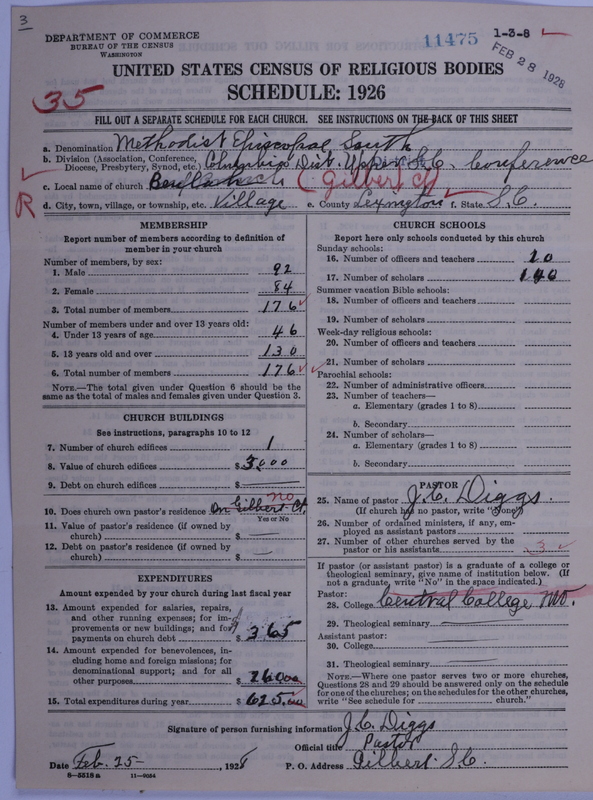 3
DEPARTMENT OF COMMERCE
BUREAU OF THE CENSUS
WASHINGTON
11475
1-3-8
FEB 28 1928
UNITED STATES CENSUS OF RELIGIOUS BODIES
SCHEDULE: 1926
35
FILL OUT A SEPARATE SCHEDULE FOR EACH CHURCH. SEE INSTRUCTIONS ON THE BACK OF THIS SHEET
a. Denomination Methodist Episcopal South
b. Division (Association, Conference, Diocese, Presbytery, Synod, etc.) Columbia Dist. Upper S.C. Conference
c. Local name of church (Gilbert Ct)
R
d. City, town, village, or township, etc. Village e. County Lexington f. State S.C.
MEMBERSHIP
Report number of members according to definition of
member in your church
Number of members, by sex:
1. Male 92
2. Female 84
3. Total number of members 176
Number of members under and over 13 years old:
4. Under 13 years of age 46
5. 13 years old and over 130
6. Total number of members 176
NOTE.—The total given under Question 6 should be
same as the total of males and females given under Question 3.
CHURCH BUILDINGS
See instructions, paragraphs 10 to 12
7. Number of church edifices 1
8. Value of church edifices $ 3,000
9. Debt on church edifices $ —
10. Does church own pastor's residence On Gilbert Ct. no
Yes or No
11. Value of pastor's residence (if owned by
church) $ —
12. Debt on pastor's residence (if owned by
church) $ —
EXPENDITURES
Amount expended by your church during last fiscal year
13. Amount expended for salaries, repairs,
and other running expenses; for im-
provements or new buildings; and for
payments on church debt $ 365
14. Amount expended for benevolences, in-
cluding home and foreign missions; for
denominational support; and for all
other purposes 260.00
15. Total expenditures during year $ 625.00
CHURCH SCHOOLS
Report here only schools conducted by this church
Sunday schools:
16. Number of officers and teachers 10
17. Number of scholars 140
Summer vacation Bible schools:
18. Number of officers and teachers
19. Number of scholars
Week-day religious schools:
20. Number of officers and teachers
21. Number of scholars
Parochial schools:
22. Number of administrative officers
23. Number of teachers—
a. Elementary (grades 1 to 8)
b. Secondary
24. Number of scholars—
a. Elementary (grades 1 to 8)
b. Secondary
PASTOR
25. Name of pastor J.C. Diggs.
(If church has no pastor, write "None")
26. Number of ordained ministers, if any, em-
ployed as assistant pastors
27. Number of other churches served by the
pastor or his assistants 3
If pastor (or assistant pastor) is a graduate of a college or
theological seminary, give name of institution below. (If
not a graduate, write "No" in the space indicated.)
Pastor:
28. College Central College Mo.
29. Theological seminary
Assistant pastor:
30. College
31. Theological seminary
NOTE.—Where one pastor serves two or more churches,
Questions 28 and 29 should be answered only on the schedule
for one of the churches; on the schedules for the other churches,
write "See schedule for church."
Signature of person furnishing information J.C. Diggs
Official title Pastor
Date Feb. 25 — , 1928 P. O. Address Gilbert S.C.
8—5518 a 11—9034